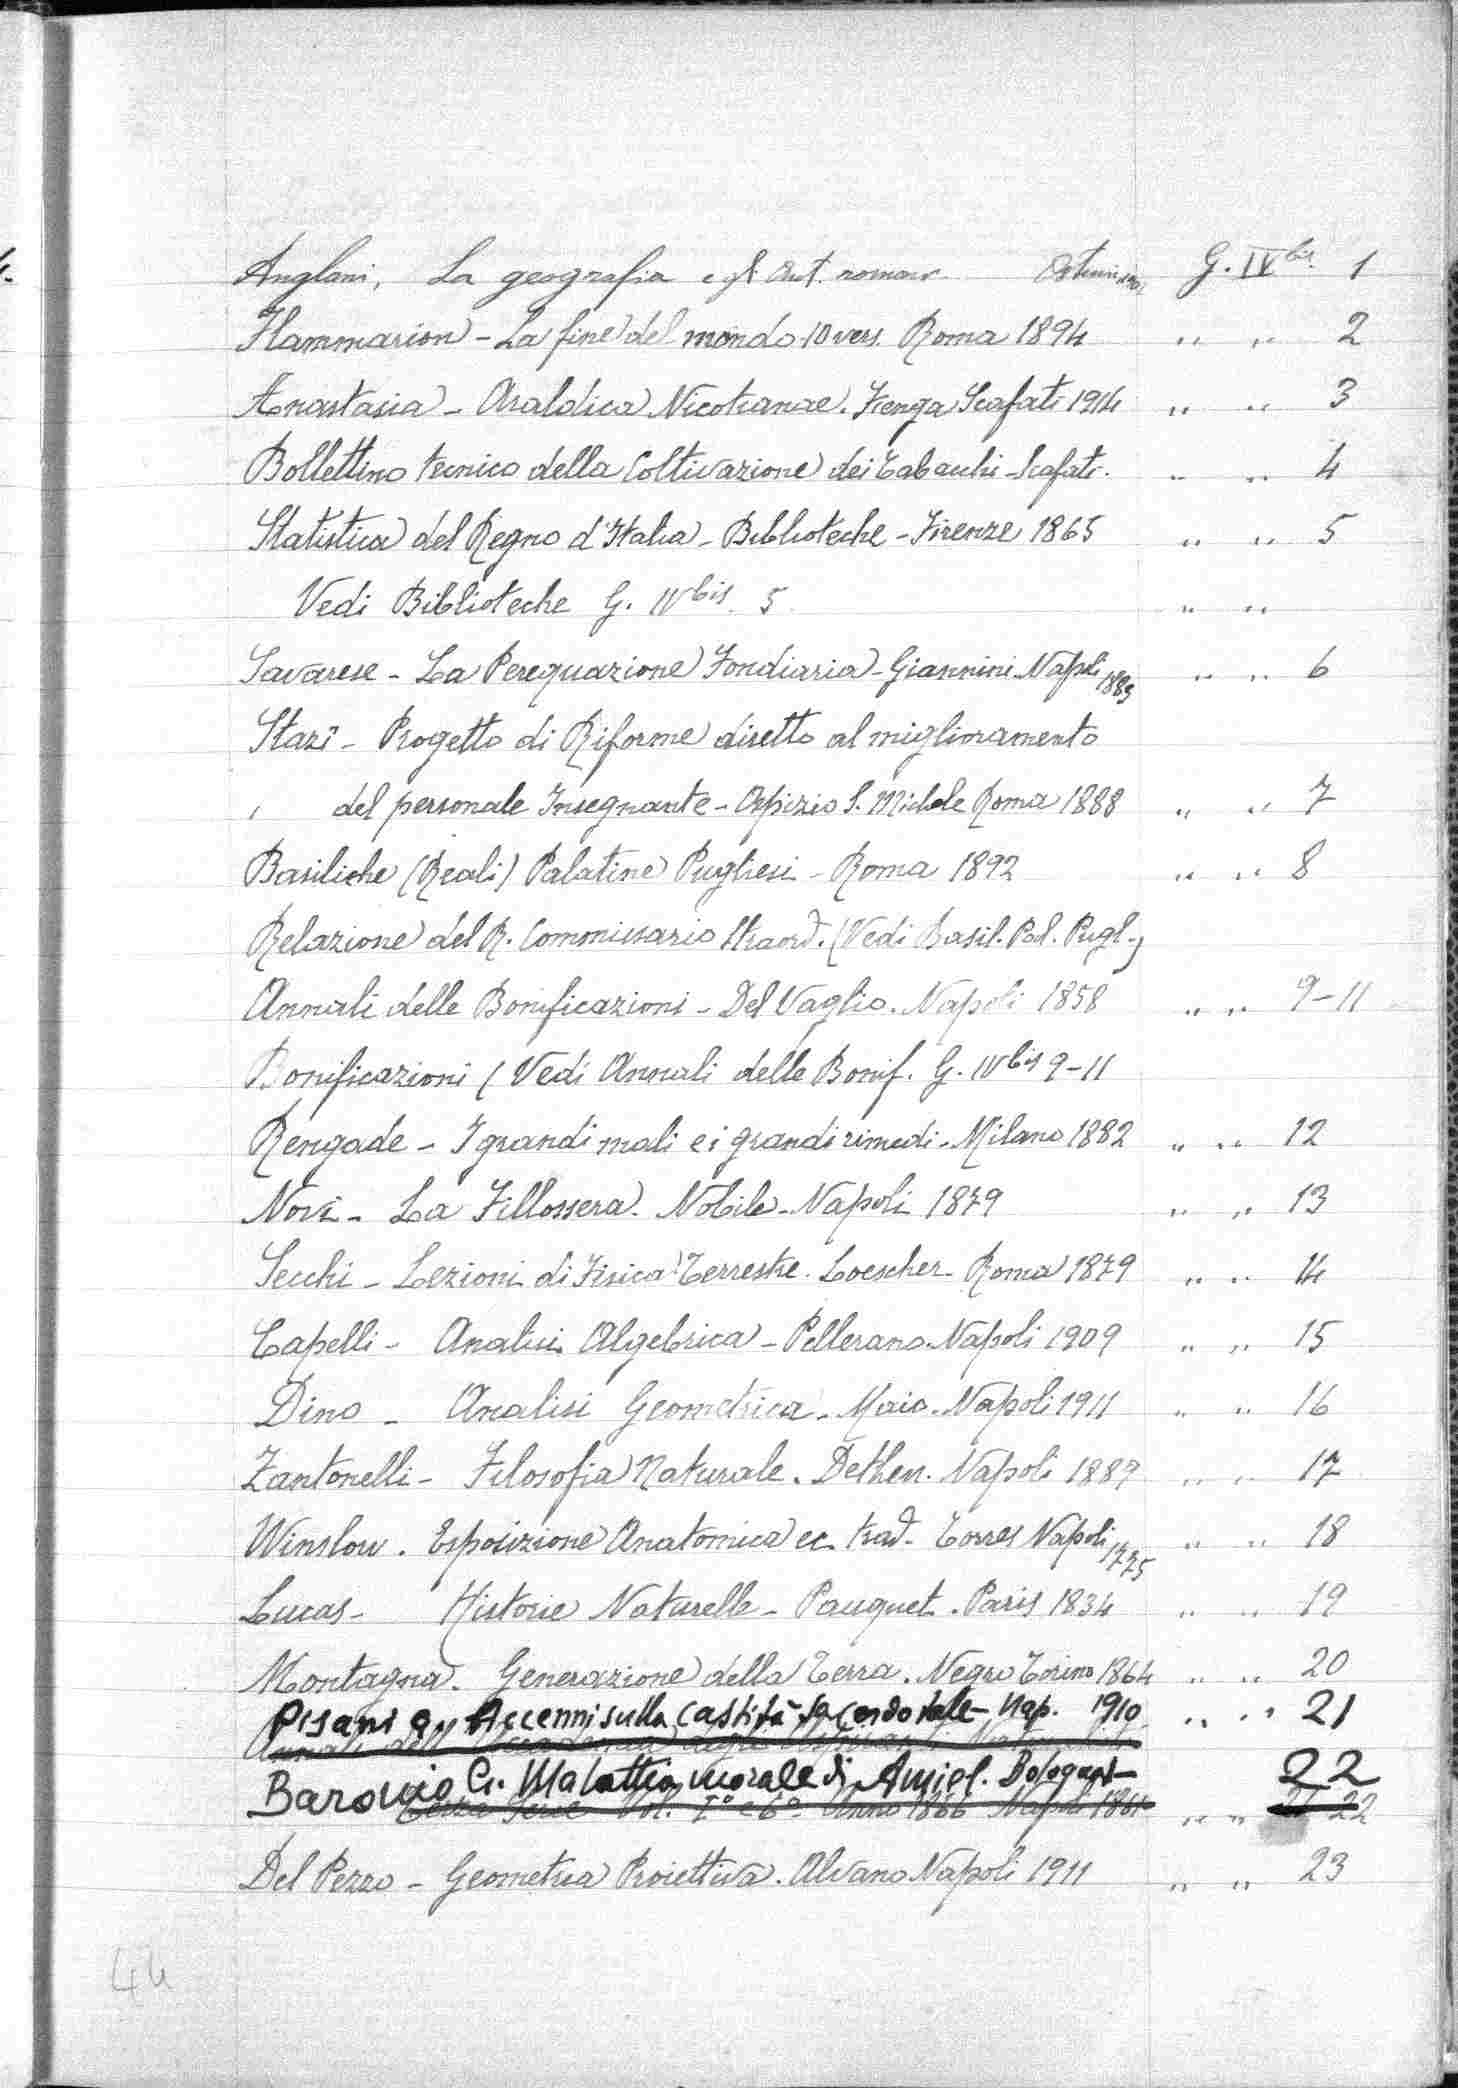 Anglani, La geografia e gli Aut. romani Ostuni G. IV bis. 1
Flammarion - La fine del mondo 10 vers. Roma 1894 " " 2
Anastasia - Araldica Nicotianae. Fienga Scafati 1914 " " 3
Bollettino tecnico della Coltivazione dei Tabacchi Scafati. " " 4
Statistica del Regno d'Italia - Biblioteche - Firenze 1865 " " 5
Vedi Biblioteche G. IV bis 5 " "
Savarese - La Perequazione Fondiaria - Giannini Napoli 1883 " " 6
Stazi - Progetto di Riforme diretto al miglioramento
del personale Insegnante - Ospizio S. Michele Roma 1888 " " 7
Basiliche (Reali) Palatine Pugliesi - Roma 1892 " " 8
Relazione del R. Commissario Straord. (Vedi Basil. Pal. Pugl.)
Annali delle Bonificazioni - Del Vaglio. Napoli 1858 " " 9-11
Bonificazioni (Vedi Annali delle Bonif. G. IV bis 9-11
Rengade - I grandi mali e i grandi rimedi - Milano 1882 " " 12
Novi - La Fillossera. Nobile - Napoli 1879 " " 13
Secchi - Lezioni di Fisica Terrestre. Loescher - Roma 1879 " " 14
Capelli - Analisi Algebrica - Pellerano. Napoli 1909 " " 15
Dino - Analisi Geometrica - Maio. Napoli 1911 " " 16
Zantonelli - Filosofia Naturale. Dethen. Napoli 1889 " " 17
Winslow. Esposizione Anatomica ec trad. Torres Napoli 1775 " " 18
Lucas - Historie Naturelle - Pauquet. Paris 1834 " " 19
Montagna. Generazione della Terra. Negro Torino 1864 " " 20
Pisani G. Accenni sulla castità sacerdotale - Nap. 1910 " " 21
Annali dell' Accademia degli Aspiranti Naturalisti
Baravaio C. Malattia morale di Amiel. Bologna 22
Terza Serie Vol. I° e 6° Anno 1866 Napoli 1861 " " 21 22
Del Pezzo - Geometria Proiettiva. Alvano Napoli 1911 " " 23
44